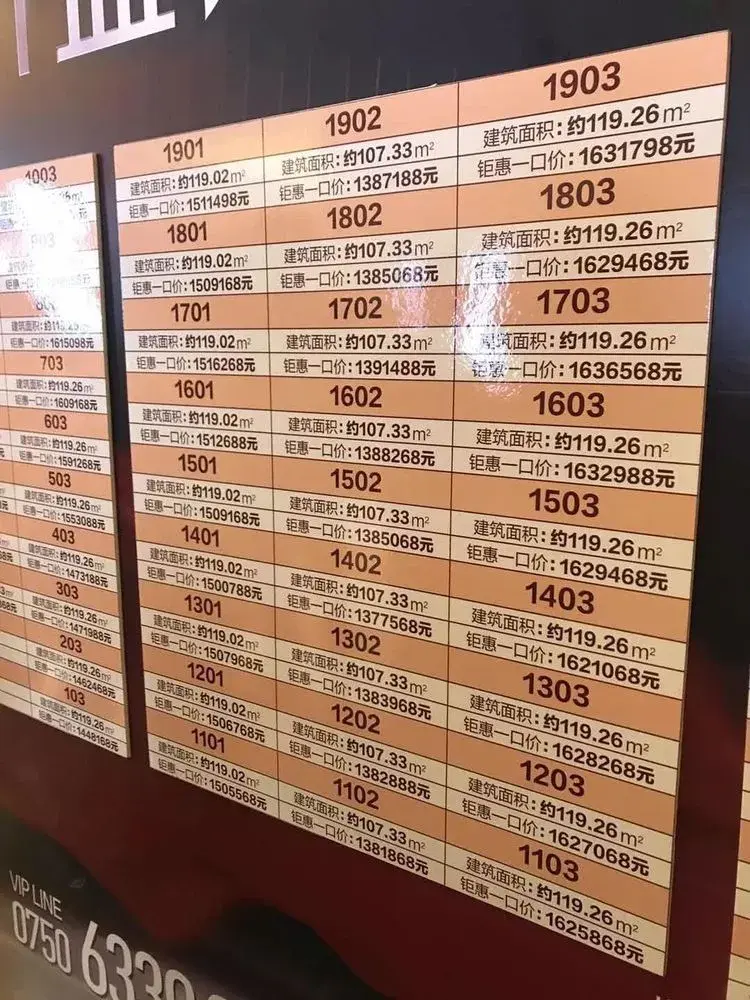 1003
703
建筑面积:约119.26m²
钜惠一口价:1609168元
603
建筑面积:约119.26m²
钜惠一口价:1591268元
503
建筑面积:约119.26m²
钜惠一口价:1553088元
403
建筑面积:约119.26m²
钜惠一口价:1473188元
303
建筑面积:约119.26m²
钜惠一口价:1471988元
203
建筑面积:约119.26m²
钜惠一口价:1462468元
103
建筑面积:约119.26m²
钜惠一口价:1448168元
1901
建筑面积:约119.02m²
钜惠一口价:1511498元
1902
建筑面积:约107.33m²
钜惠一口价:1387188元
1903
建筑面积:约119.26m²
钜惠一口价:1631798元
1801
建筑面积:约119.02m²
钜惠一口价:1509168元
1802
建筑面积:约107.33m²
钜惠一口价:1385068元
1803
建筑面积:约119.26m²
钜惠一口价:1629468元
1701
建筑面积:约119.02m²
钜惠一口价:1516268元
1702
建筑面积:约107.33m²
钜惠一口价:1391488元
1703
建筑面积:约119.26m²
钜惠一口价:1636568元
1601
建筑面积:约119.02m²
钜惠一口价:1512688元
1602
建筑面积:约107.33m²
钜惠一口价:1388268元
1603
建筑面积:约119.26m²
钜惠一口价:1632988元
1501
建筑面积:约119.02m²
钜惠一口价:1509168元
1502
建筑面积:约107.33m²
钜惠一口价:1385068元
1503
建筑面积:约119.26m²
钜惠一口价:1629468元
1401
建筑面积:约119.02m²
钜惠一口价:1500788元
1402
建筑面积:约107.33m²
钜惠一口价:1377568元
1403
建筑面积:约119.26m²
钜惠一口价:1621068元
1301
建筑面积:约119.02m²
钜惠一口价:1507968元
1302
建筑面积:约107.33m²
钜惠一口价:1383968元
1303
建筑面积:约119.26m²
钜惠一口价:1628268元
1201
建筑面积:约119.02m²
钜惠一口价:1506768元
1202
建筑面积:约107.33m²
钜惠一口价:1382888元
1203
建筑面积:约119.26m²
钜惠一口价:1627068元
1101
建筑面积:约119.02m²
钜惠一口价:1505568元
1102
建筑面积:约107.33m²
钜惠一口价:1381868元
1103
建筑面积:约119.26m²
钜惠一口价:1625868元
VIP LINE
0750